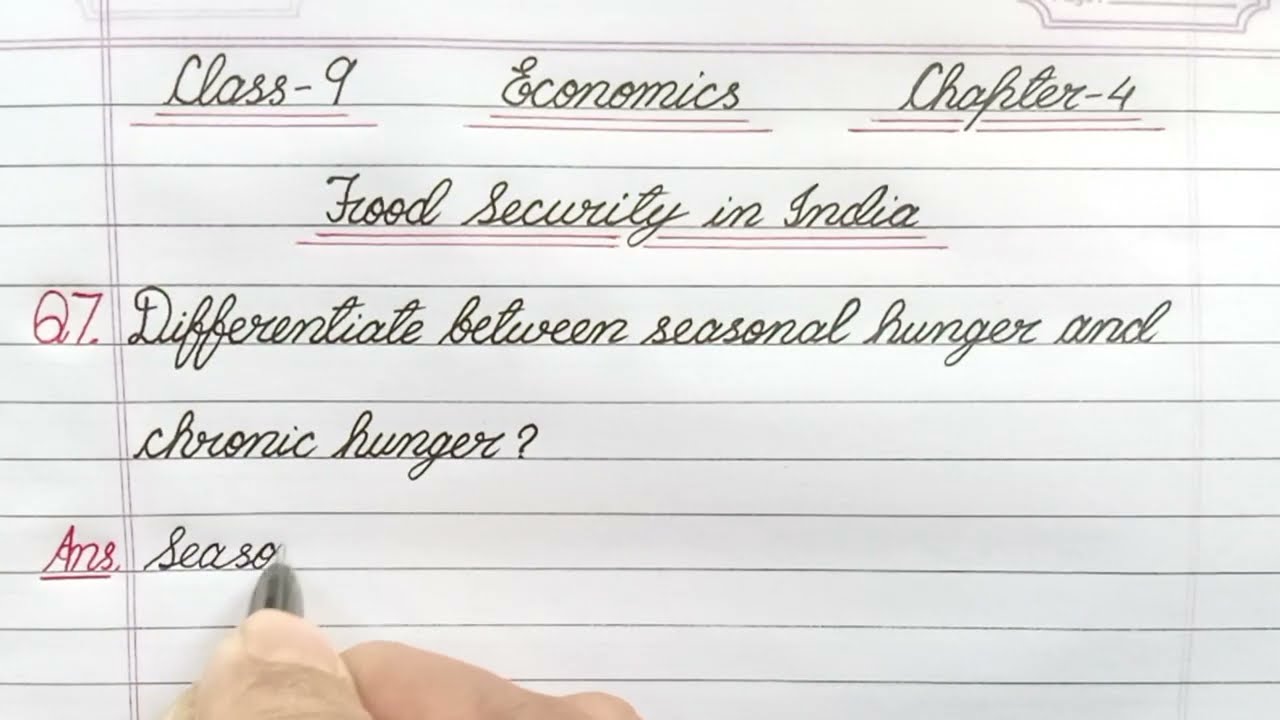 Class-9 Economics Chapter-4
Food Security in India
Q7. Differentiate between seasonal hunger and
chronic hunger?
Ans. Seaso